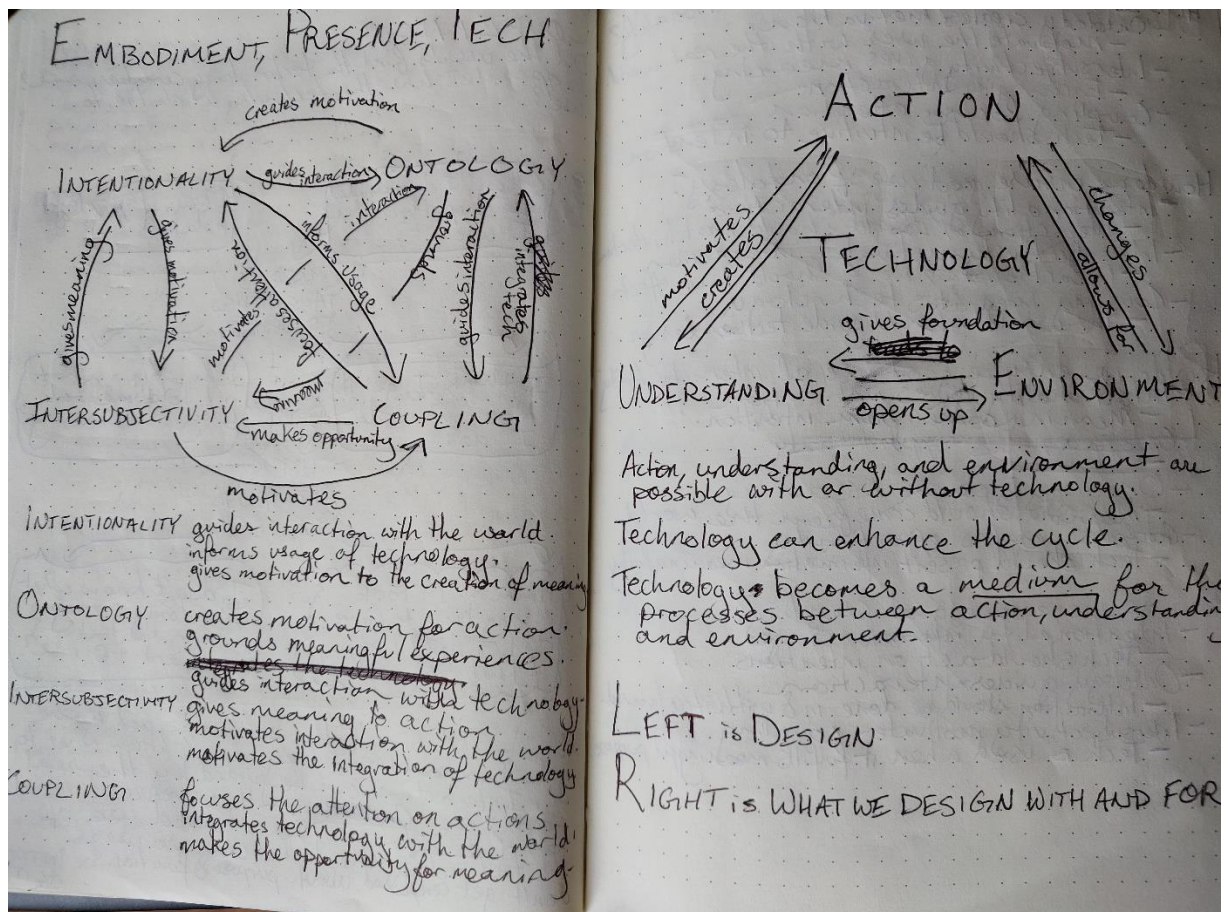 EMBODIMENT, PRESENCE, TECH
creates motivation
INTENTIONALITY
guides interaction
ONTOLOGY
gives meaning
gives motivation
motivates
interaction
focuses attention on
informs usage
grounds
meaning
guides interaction
integrates tech
INTERSUBJECTIVITY
makes opportunity
COUPLING
motivates
INTENTIONALITY guides interaction with the world.
informs usage of technology.
gives motivation to the creation of meaning
ONTOLOGY creates motivation for action.
grounds meaningful experiences.
integrates the technology
guides interaction with a technology.
INTERSUBJECTIVITY gives meaning to action
motivates interaction with the world.
motivates the integration of technology
COUPLING focuses the attention on actions.
integrates technology with the world.
makes the opportunity for meaning.
ACTION
motivates
creates
TECHNOLOGY
changes
allows for
gives foundation
leads to
UNDERSTANDING
opens up
ENVIRONMENT
Action, understanding, and environment are
possible with or without technology.
Technology can enhance the cycle.
Technology becomes a medium for the
processes between action, understandin
and environment.
LEFT is DESIGN
RIGHT is WHAT WE DESIGN WITH AND FOR